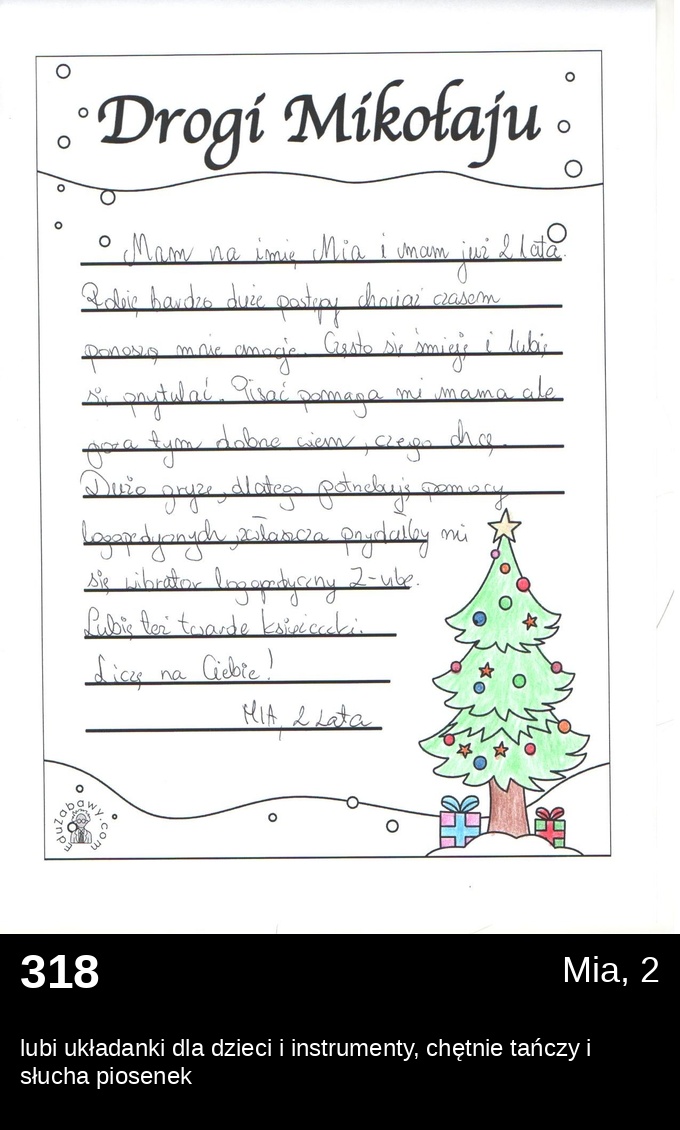 Drogi Mikołaju
Mam na imię Mia i mam już 2 lata.
Robię bardzo duże postępy chociaż czasem
ponoszą mnie emocje. Często się śmieję i lubię
się przytulać. Pisać pomaga mi mama ale
poza tym dobrze wiem, czego chcę.
Dużo gryzę, dlatego potrzebuję pomocy
logopedycznych, zwłaszcza przydałby mi
się wibrator logopedyczny Z-vibe.
Lubię też twarde książeczki.
Liczę na Ciebie!
MIA, 2 Lata
eduzabawy.com
318
Mia, 2
lubi układanki dla dzieci i instrumenty, chętnie tańczy i
słucha piosenek